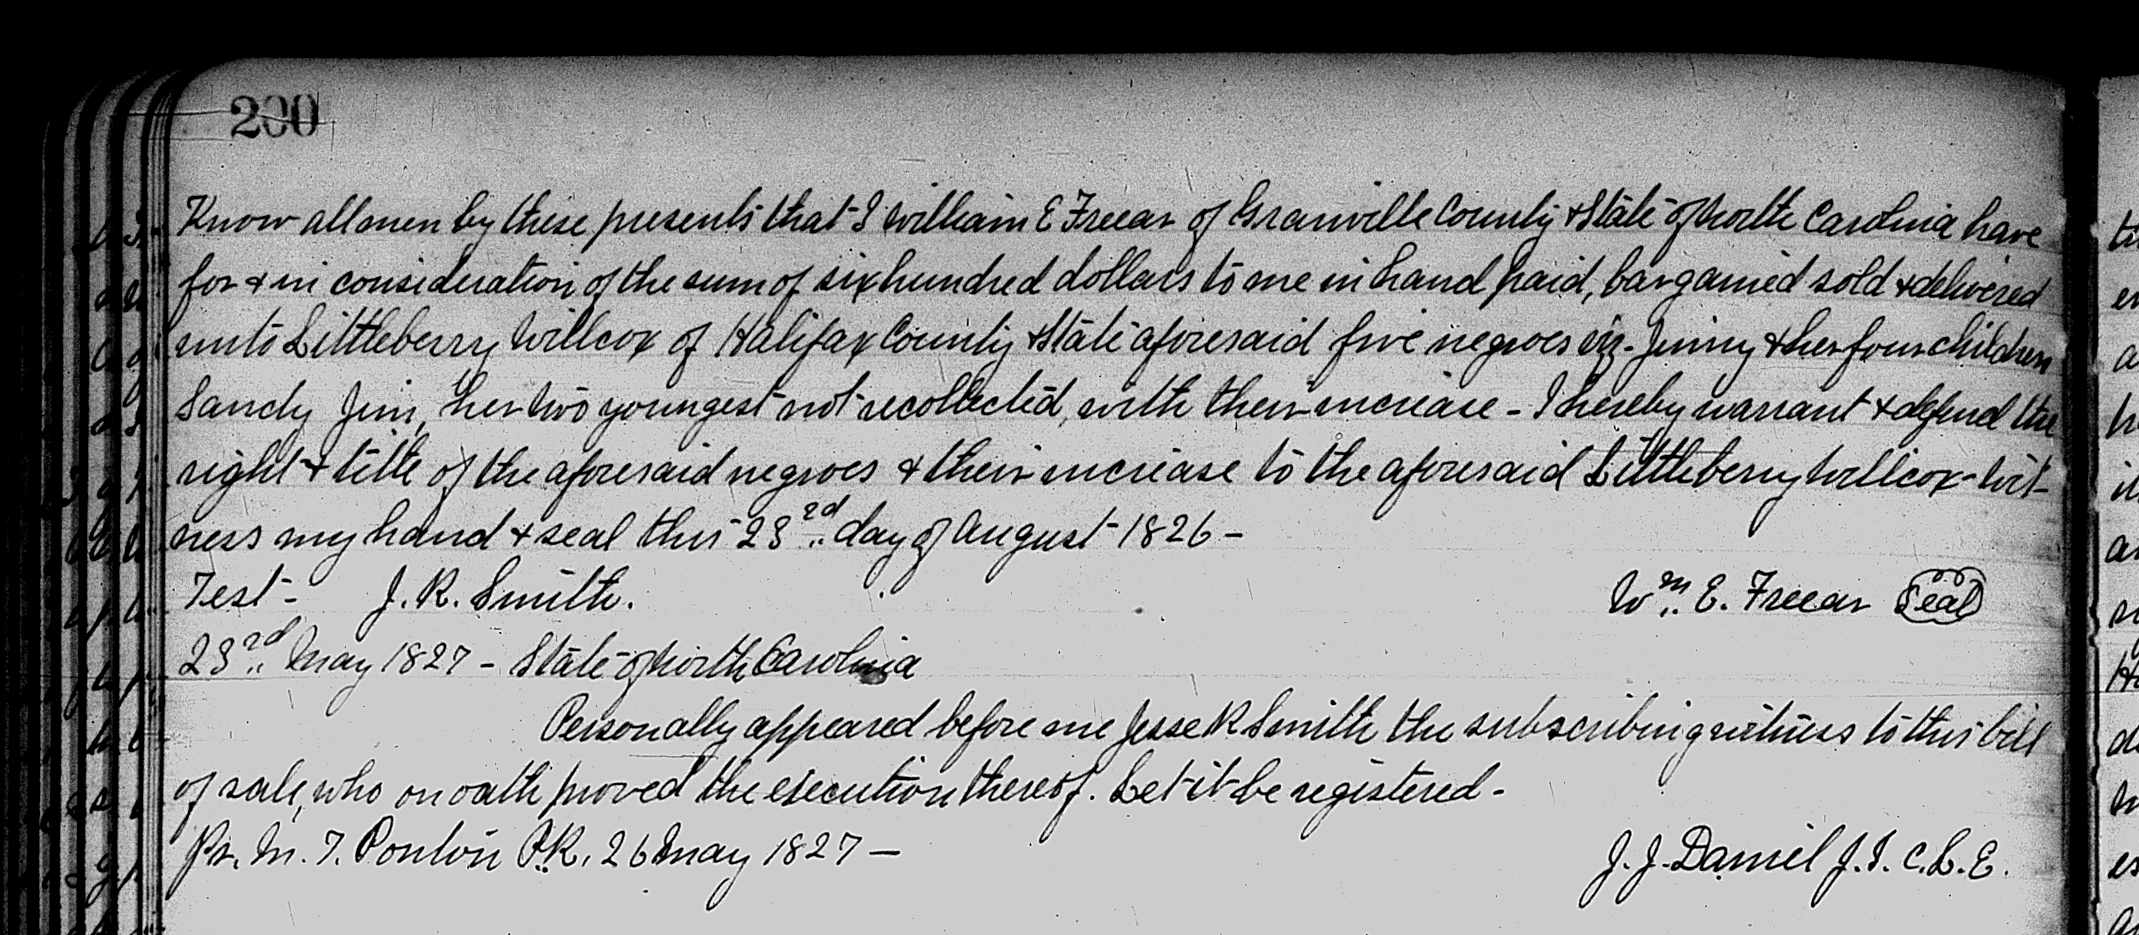 200
Know all men by these presents that I William E Freear of Granville County & State of North Carolina have
for & in consideration of the sum of six hundred dollars to me in hand paid, bargained sold & delivered
unto Littleberry Willcox of Halifax County & State aforesaid five negroes viz- Jinny & her four children
Sandy Jim, her two youngest not recollected, with their increase - I hereby warrant & defend the
right & title of the aforesaid negroes & their increase to the aforesaid Littleberry Willcox - Wit-
ness my hand & seal this 23rd day of August 1826 -
Test - J. R. Smith. Wm. E. Freear Seal
23rd May 1827 - State of North Carolina
Personally appeared before me Jesse R Smith the subscribing witness to this bill
of sale, who on oath proved the execution thereof. Let it be registered -
Pr. M. T. Ponton P.R. 26 May 1827 - J. J. Daniel J. S. C. L. E.